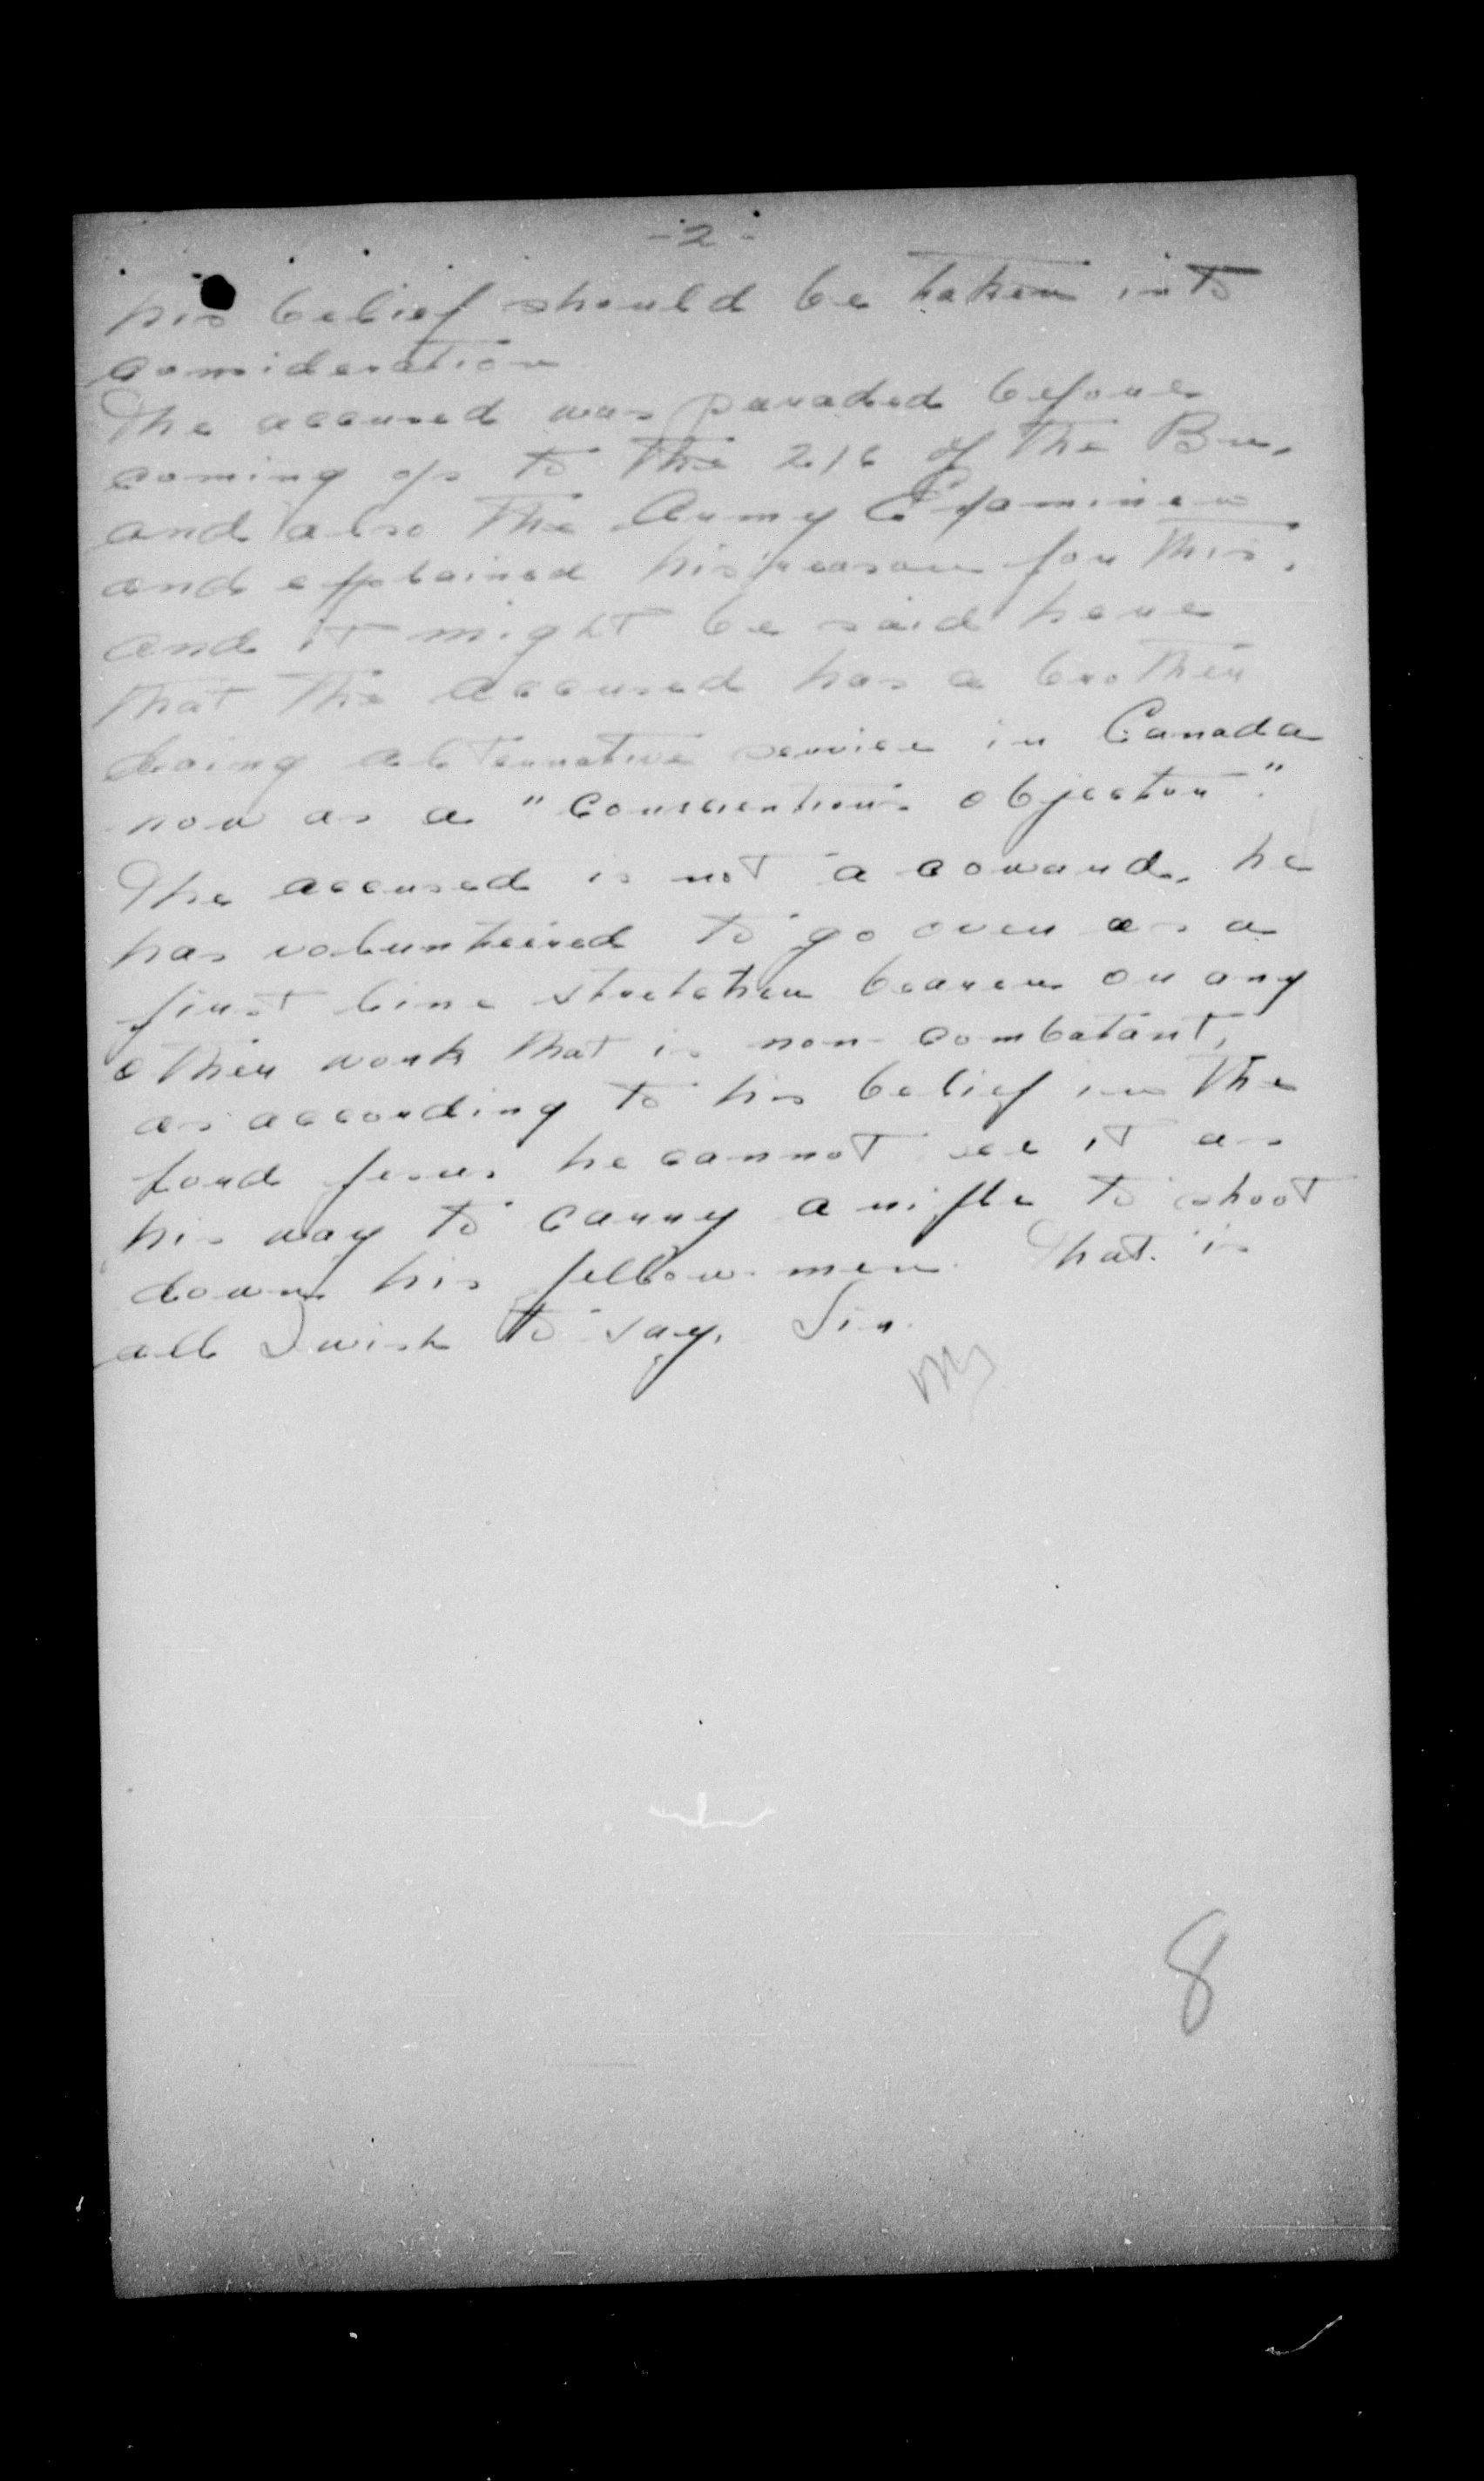 -2-
his belief should be taken into
consideration
The accused was paraded before
coming o/s to the 2i/c of the Bn.
and also the Army Examiner
and explained his reason for this,
and it might be said here
that the accused has a brother
doing alternative service in Canada
now as a "conscientious objector".
The accused is not a coward, he
has volunteered to go over as a
first line stretcher bearer or any
other work that is non-combatant,
as according to his belief in the
Lord Jesus he cannot see it as
his way to carry a rifle to shoot
down his fellow-men. That is
all I wish to say, Sir.
8